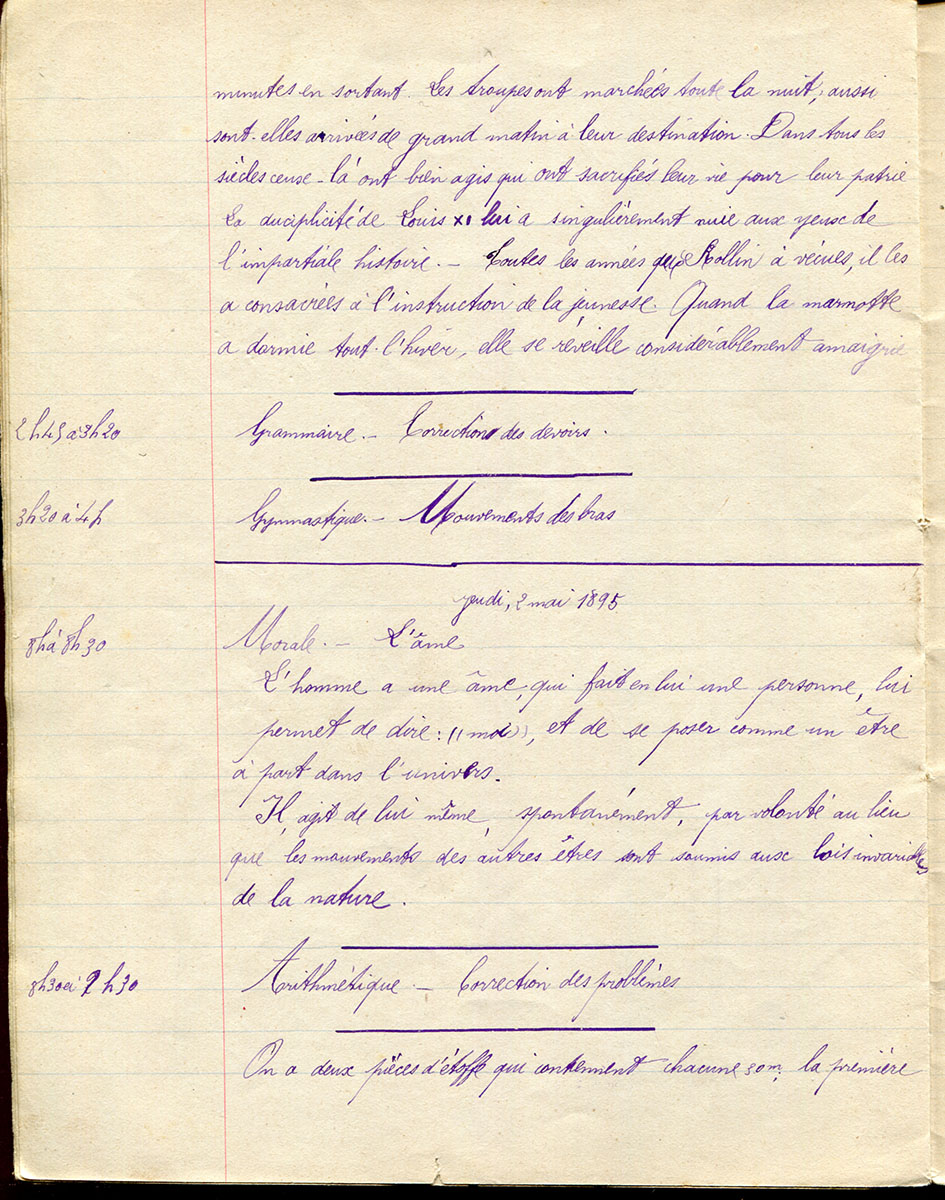 minutes en sortant. Les troupes ont marchées toute la nuit, aussi
sont-elles arrivées de grand matin à leur destination. Dans tous les
siècles ceux-là ont bien agis qui ont sacrifiés leur vie pour leur patrie
La duciplicité de Louis XI lui a singulièrement nuie aux yeux de
l'impartiale histoire. — Toutes les années que Rollin à vécues, il les
a consacrées à l'instruction de la jeunesse. Quand la marmotte
a dormie tout l'hiver, elle se réveille considérablement amaigrie
2h45 à 3h20 Grammaire. — Corrections des devoirs.
3h20 à 4h Gymnastique. — Mouvements des bras
jeudi, 2 mai 1895
8h à 8h30 Morale. — L'âme
L'homme a une âme, qui fait en lui une personne, lui
permet de dire : ((moi)), et de se poser comme un être
à part dans l'univers.
Il, agit de lui même, spontanément, par volonté au lieu
que les mouvements des autres êtres sont soumis aux lois invariables
de la nature.
8h30 à 9h30 Arithmétique — Correction des problèmes
On a deux pièces d'étoffe qui contennent chacune 30m; la première